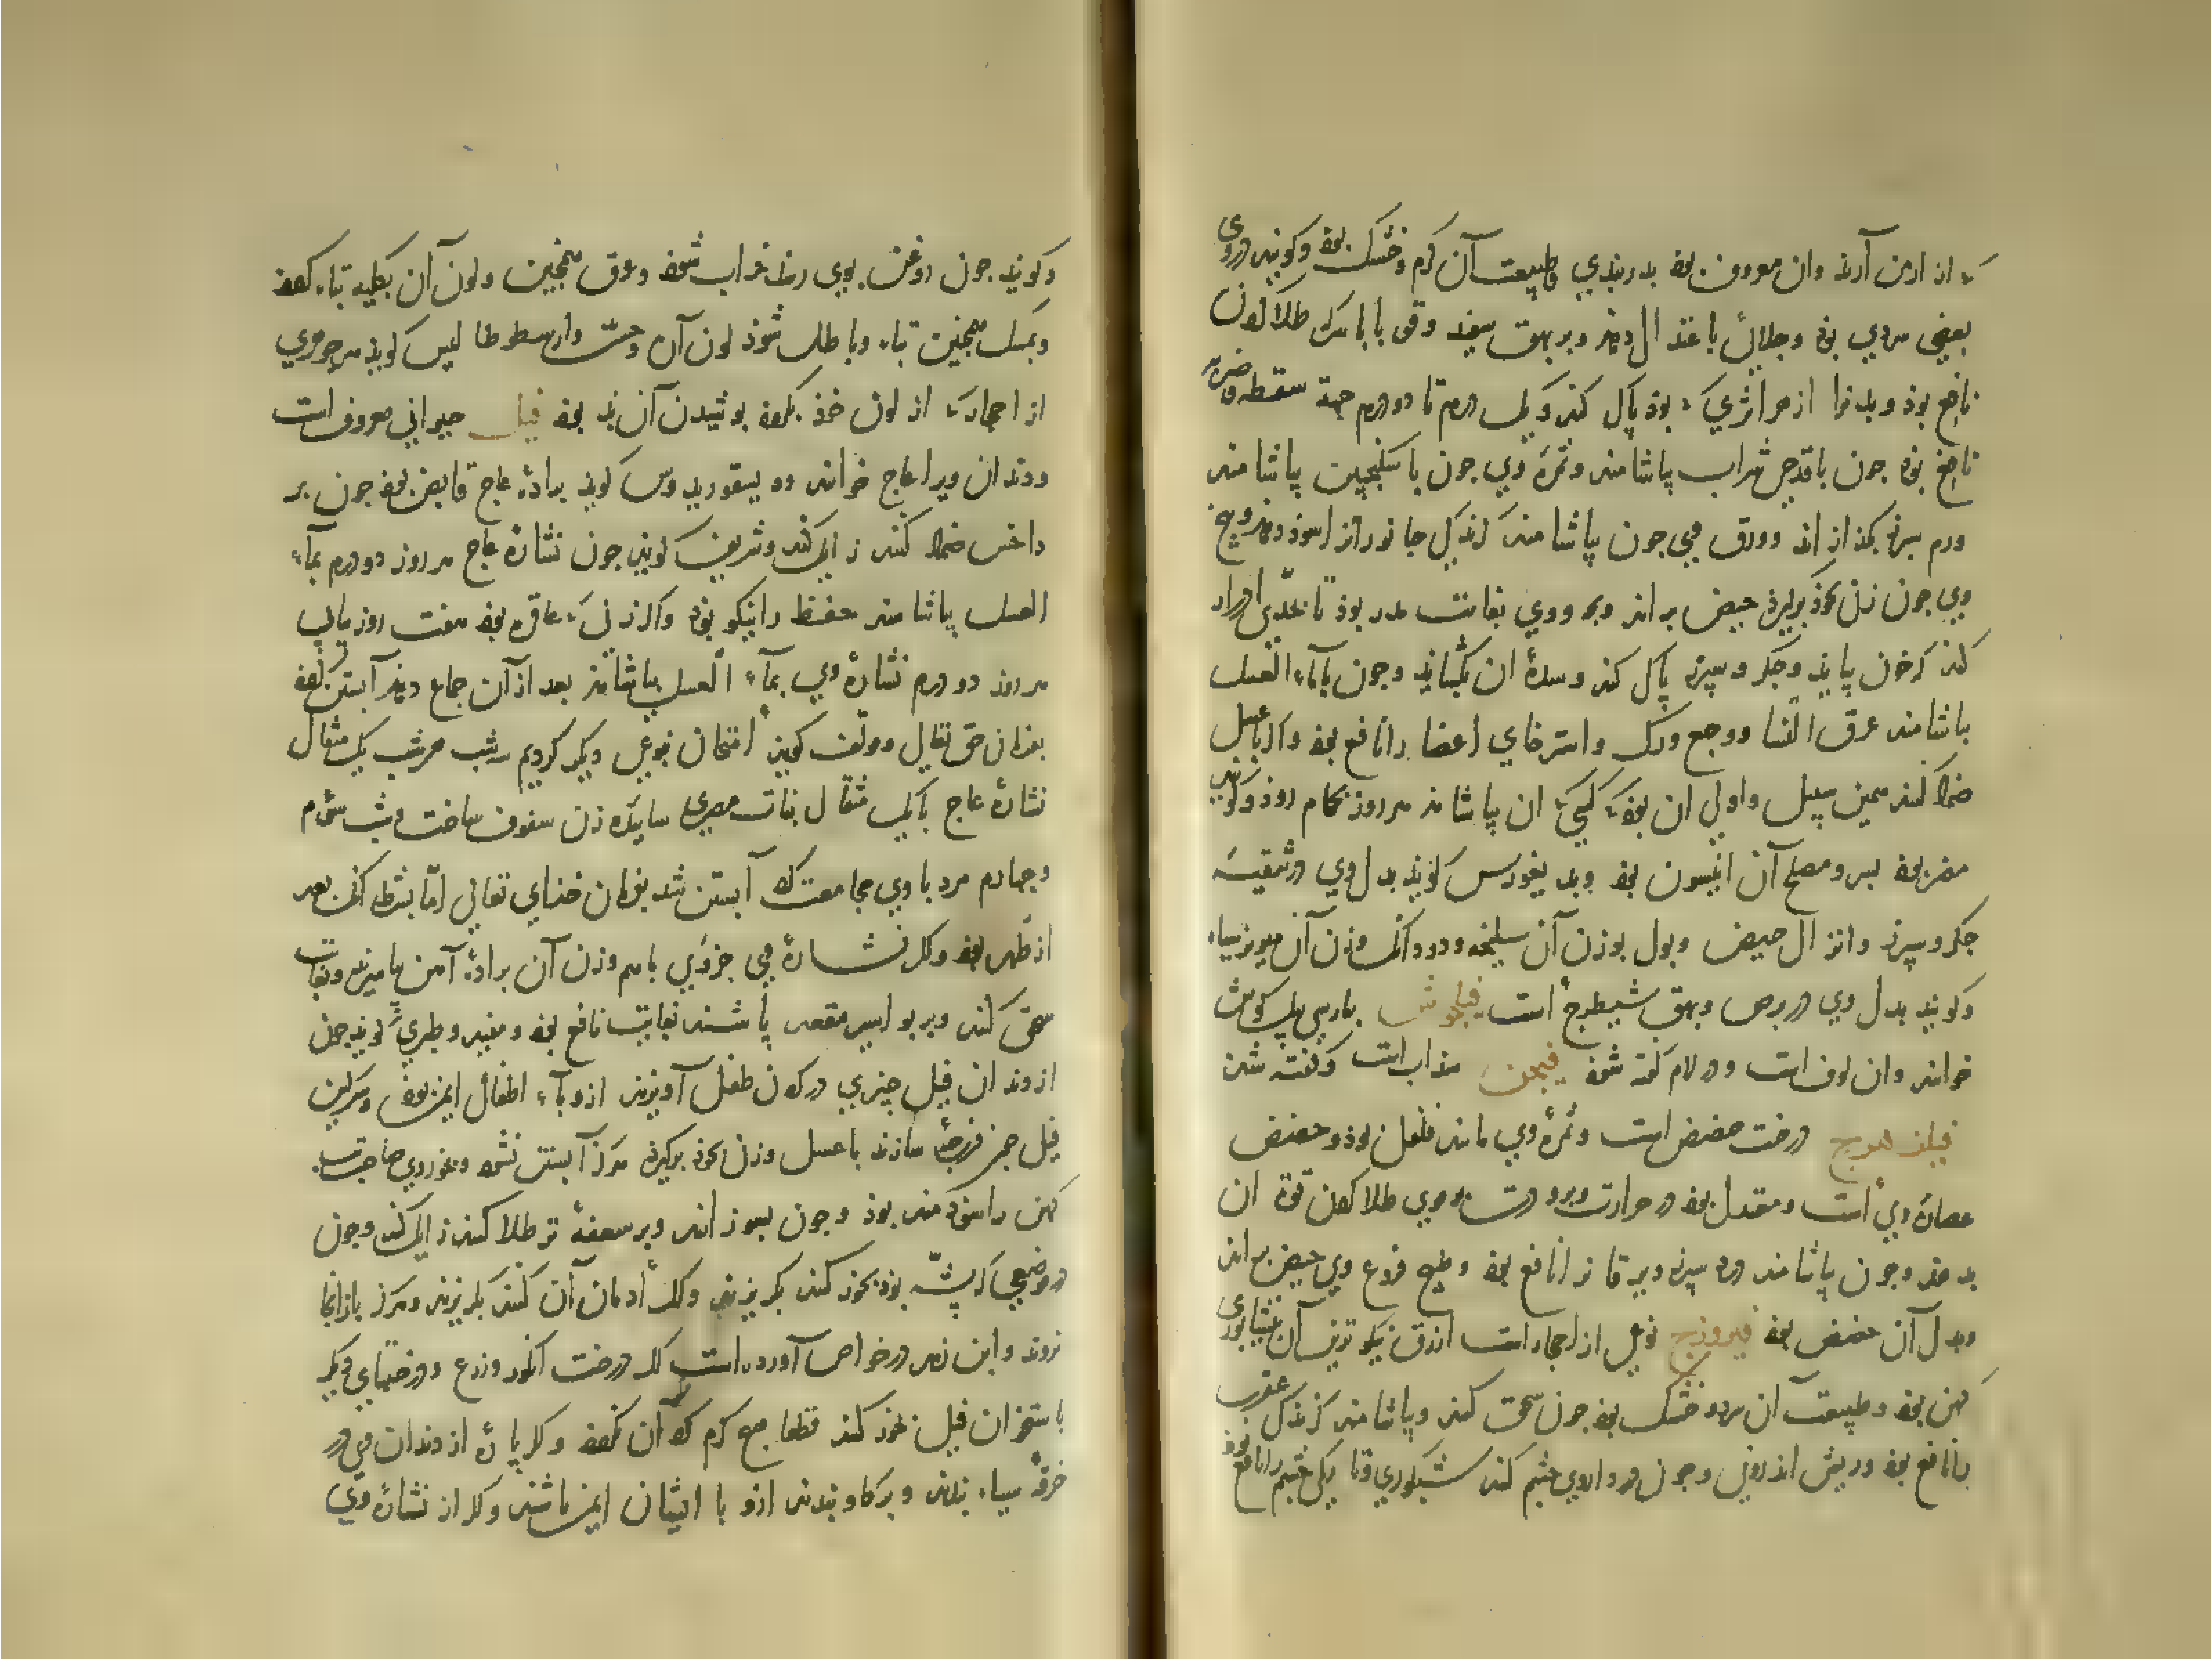 که از ارمن آرند وان معروف بود بدریدی و طبیعت آن گرم و خشک بود و گویند در وی
بعضی سردی بود و جلائی باعتدال دهد و بر بهق سفید و قوبا با سرکه طلا کردن
نافع بود و بدنرا از هر اثری که بود پاک کند و یک درم تا دو درم جهة سقطه و ضربه
نافع بود چون با قدحی شراب بیاشامند و ثمرهٔ وی چون با سکنجبین بیاشامند
ورم سپرز بگدازاند و ورق وی چون بیاشامند گزندگی جانورانرا سود دهد و بیخ
وی چون زن بخود برگیرد حیض براند و بوی بغایت مدر بود تا بحدی ادرار
کند که خون بیاید و جگر و سپرز پاک کند و سدهٔ آن بگشاید و چون با ماء العسل
بیاشامند عرق النسا و وجع ورک و استرخای اعضا را نافع بود و اگر با عسل
ضماد کنند همین سبیل و اولی آن بود که کسی که آن بیاشامد هر روز بحمام رود و گویند
مضر بود بسر و مصلح آن انیسون بود و دیسقوریدس گوید بدل وی در تنقیه
جگر و سپرز و انزال حیض و بول بوزن آن سلیخه و دو دانگ وزن آن مویز سیاه
و گویند بدل وی در برص و بهق شیطرج است فیلجوش بپارسی پیل گوش
خوانند وان لوف است و در لام گفته شود فیجن سذاب است و گفته شد
فیلزهرج درخت حضض است و ثمرهٔ وی مانند فلفل بود و حضض
عصارهٔ وی است و معتدل بود در حرارت و برودت و موی طلا کردن قوة ان
بدهد و چون بیاشامند درد سپرز و یرقانرا نافع بود و طبیخ فروع وی حیض براند
و بدل آن حضض بود فیروزج نوعی از احجار است ازرق نیکوترین آن نیشابوری
کهن بود و طبیعت آن سرد و خشک بود چون سحق کنند و بیاشامند گزندگی عقرب
را نافع بود و ریش اندرونی و چون در داروی چشم کنند شبکوری و تاریکی چشم را نافع بود
و گویند چون روغن بوی رسد خراب شود و عرق همچنین و لون آن بکلیه تباه کند
و بمسک همچنین تباه و باطل شود لون آن و حسن وارسطوطالیس گوید هر حجری
از احجار که از لون خود بگردد پوشیدن آن بد بود فیل حیوانی معروف است
و دندان ویرا عاج خوانند و دیسقوریدوس گوید برادهٔ عاج قابض بود چون بر
داخس ضماد کنند زایل کند و شریف گوید چون نشارهٔ عاج هر روز دو درم بماء
العسل بیاشامند حفظ را نیکو بود و اگر زنی که عاقره بود هفت روز پیاپی
هر روز دو درم نشارهٔ وی بماء العسل بیاشامد بعد از آن جماع دهند آبستن گردد
بفرمان حق تعالی و مولف گوید امتحان بنوعی دیگر کردیم سه شب هر شب یک مثقال
نشارهٔ عاج با یک مثقال نبات مصری ساییده زن سفوف ساخت و شب سؤم
و چهارم مرد با وی مجامعت کرد آبستن شد بفرمان خدای تعالی اما بشرط آنک بعد
از طهر بود و اگر نشارهٔ وی جزوی با هم وزن آن برادهٔ آهن بیامیزند و بغایت
سحق کنند و بر بواسیر مقعد پاشند بغایت نافع بود و مفید و طبری گوید چون
از دندان فیل چیزی در گردن طفل آویزند از وباء اطفال ایمن بود و سرگین
فیل چون فرزجه سازند با عسل و زن بخود برگیرد هرگز آبستن نشود و بخور وی صاحب تب
کهن را سودمند بود و چون بسوزانند و بر سعفهٔ تر طلا کنند زایل کند و چون
در موضعی که پشه بود بخور کنند بگریزند و اگر ادمان آن کنند بگریزند و هرگز بازانجا
نروند و ابن زهر در خواص آورده است که درخت انگور و زرع و درختهای دیگر
باستخوان فیل بخور کنند قطعا هیچ کرم گرد آن نگردد و اگر پارهٔ از دندان وی در
خرقهٔ سیاه بندند و بر گاو بندند از وبا ایشان ایمن باشند و اگر از نشارهٔ وی